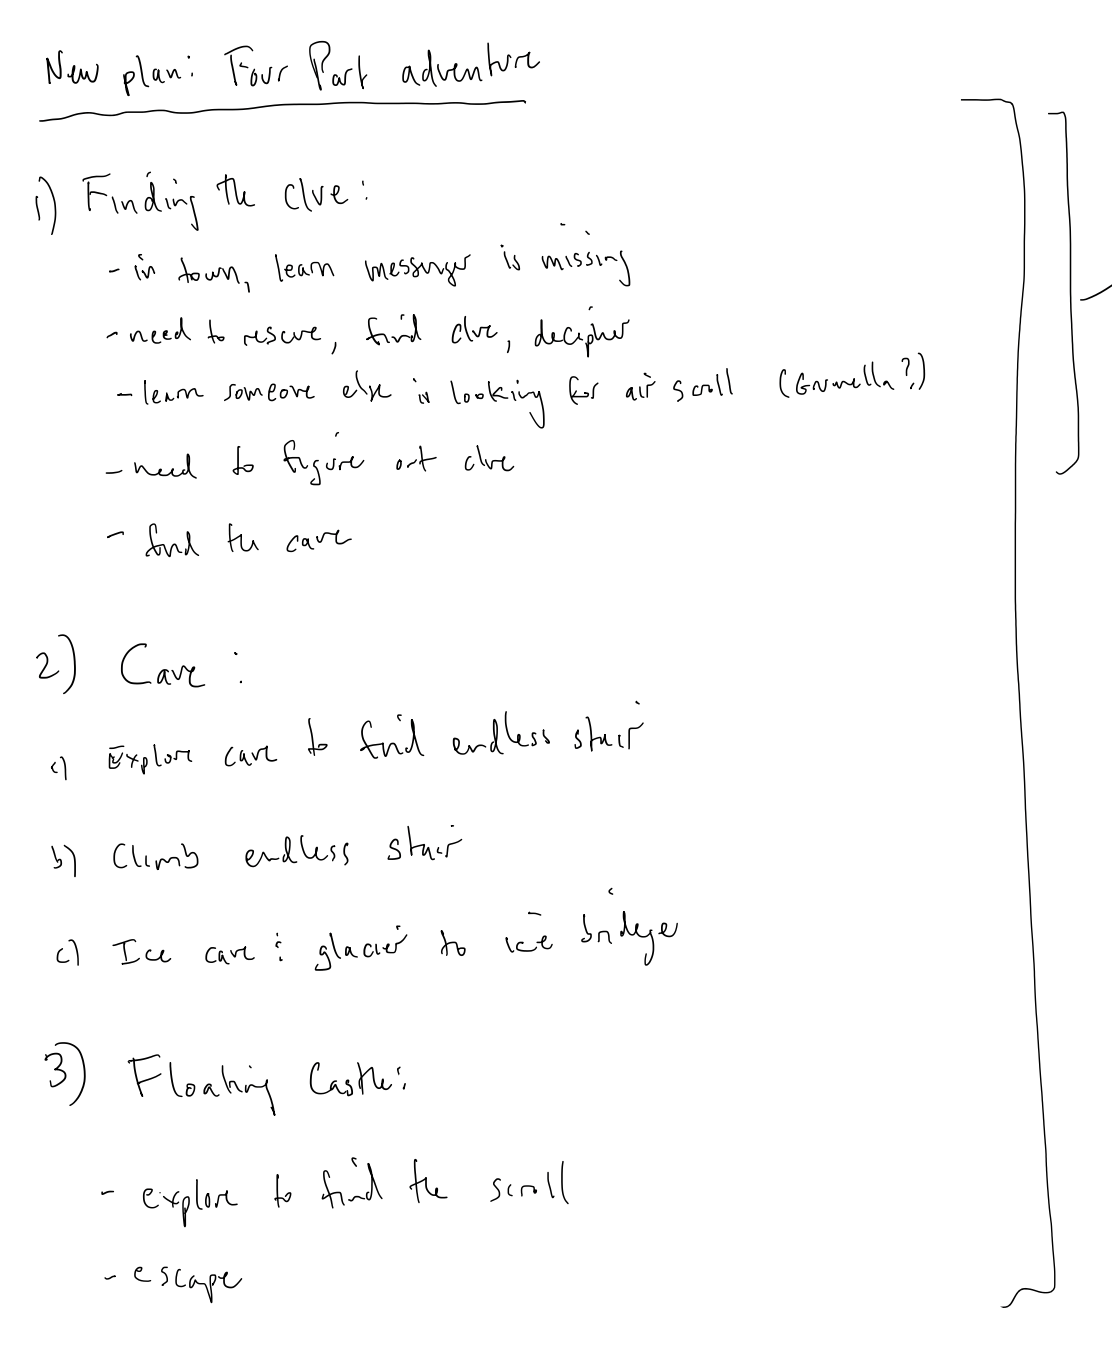 New plan: Four Part adventure
1) Finding the clue:
- in town, learn messenger is missing
- need to rescue, find clue, decipher
- learn someone else is looking for air scroll (?)
- need to figure out clue
- find the cave
2) Cave:
a) Explore cave to find endless stair
b) Climb endless stair
c) Ice cave : glacier to ice bridge
3) Floating Castle:
- explore to find the scroll
- escape